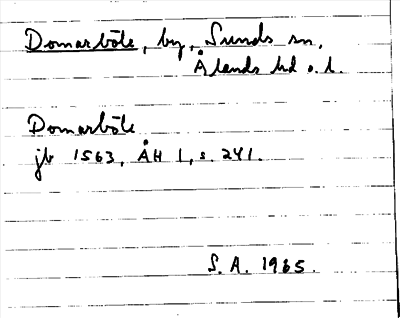 Domarböle, by, Sunds sn,
Ålands hd o. l.
Domarböle
jb 1563, ÅH 1, s. 241.
S. A. 1965.